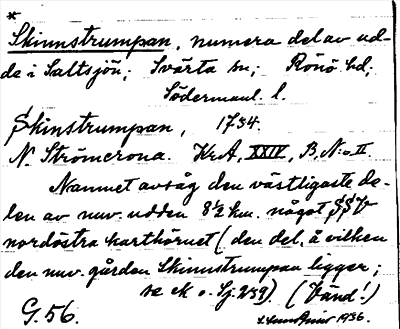 *
Skinnstrumpan, numera del av ud-
de i Saltsjön; Svärta sn; Rönö hd;
Södermanl. l.
Skinstrumpan, 1734.
N. Strömcrona. Kr A, XXIV, B, N:o II.
Namnet avsåg den västligaste de-
len av nuv. udden 8½ km. något SSV
nordöstra karthörnet (den del, å vilken
den nuv. gården Skinnstrumpan ligger;
se ek o. Sj. 239). (Vänd!)
G. 56.
1936.